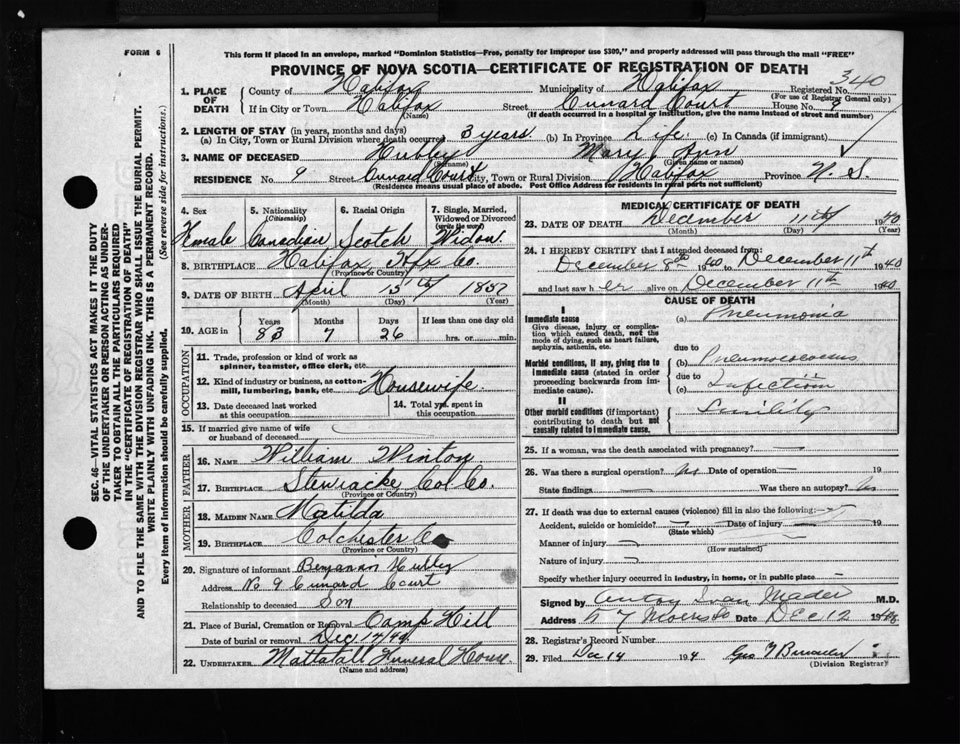 FORM 6
This form if placed in an envelope, marked "Dominion Statistics—Free, penalty for improper use $300," and properly addressed will pass through the mail "FREE"
PROVINCE OF NOVA SCOTIA—CERTIFICATE OF REGISTRATION OF DEATH
340
1. PLACE OF DEATH County of Halifax Municipality of Halifax Registered No.
(For use of Registrar General only)
If in City or Town Halifax Street Cunard Court House No. 9
(Name) (If death occurred in a hospital or institution, give the name instead of street and number)
2. LENGTH OF STAY (in years, months and days)
(a) In City, Town or Rural Division where death occurred 3 years (b) In Province Life (c) In Canada (if immigrant)
3. NAME OF DECEASED Hubley Mary Ann
(Surname) (Given name or names)
RESIDENCE No. 9 Street Cunard Court City, Town or Rural Division Halifax Province N. S.
(Residence means usual place of abode. Post Office Address for residents in rural parts not sufficient)
4. Sex 5. Nationality (Citizenship) 6. Racial Origin 7. Single, Married, Widowed or Divorced (write the word)
Female Canadian Scotch Widow
8. BIRTHPLACE Halifax, Hfx Co.
(Province or Country)
9. DATE OF BIRTH April 15th 1857
(Month) (Day) (Year)
10. AGE in Years Months Days If less than one day old
83 7 26 hrs. or min.
OCCUPATION
11. Trade, profession or kind of work as spinner, teamster, office clerk, etc.
12. Kind of industry or business, as cotton-mill, lumbering, bank, etc. Housewife
13. Date deceased last worked at this occupation
14. Total yrs. spent in this occupation
15. If married give name of wife or husband of deceased
FATHER
16. NAME William Winton
17. BIRTHPLACE Stewiacke Col. Co.
(Province or Country)
MOTHER
18. MAIDEN NAME Matilda
19. BIRTHPLACE Colchester Co
(Province or Country)
20. Signature of informant Benjamin Hubley
Address No 9 Cunard Court
Relationship to deceased Son
21. Place of Burial, Cremation or Removal Camp Hill
Date of burial or removal Dec 14/40
22. UNDERTAKER Mattatall Funeral House
(Name and address)
MEDICAL CERTIFICATE OF DEATH
23. DATE OF DEATH December 11th 1940
(Month) (Day) (Year)
24. I HEREBY CERTIFY that I attended deceased from:
December 8th 1940 to December 11th 1940
and last saw her alive on December 11th 1940
CAUSE OF DEATH
I
Immediate cause (a) Pneumonia
Give disease, injury or complication which caused death, not the mode of dying, such as heart failure, asphyxia, asthenia, etc.
due to
Morbid conditions, if any, giving rise to immediate cause (stated in order proceeding backwards from immediate cause).
(b) Pneumococcus
due to
(c) Infection
II
Other morbid conditions (if important) contributing to death but not causally related to immediate cause.
Senility
25. If a woman, was the death associated with pregnancy?
26. Was there a surgical operation? No Date of operation 19
State findings Was there an autopsy? No
27. If death was due to external causes (violence) fill in also the following:
Accident, suicide or homicide? Date of injury 19
(State which)
Manner of injury
(How sustained)
Nature of injury
Specify whether injury occurred in industry, in home, or in public place
Signed by Ivan Mader M.D.
Address 57 Morris St Dec 12 1940
28. Registrar's Record Number
29. Filed Dec 14 194
(Division Registrar)
SEC. 46—VITAL STATISTICS ACT MAKES IT THE DUTY
OF THE UNDERTAKER OR PERSON ACTING AS UNDER-
TAKER TO OBTAIN ALL THE PARTICULARS REQUIRED
IN THE "CERTIFICATE OF REGISTRATION OF DEATH"
AND TO FILE THE SAME WITH THE DIVISION REGISTRAR WHO SHALL ISSUE THE BURIAL PERMIT.
WRITE PLAINLY WITH UNFADING INK. THIS IS A PERMANENT RECORD.
Every item of information should be carefully supplied. (See reverse side for instructions.)